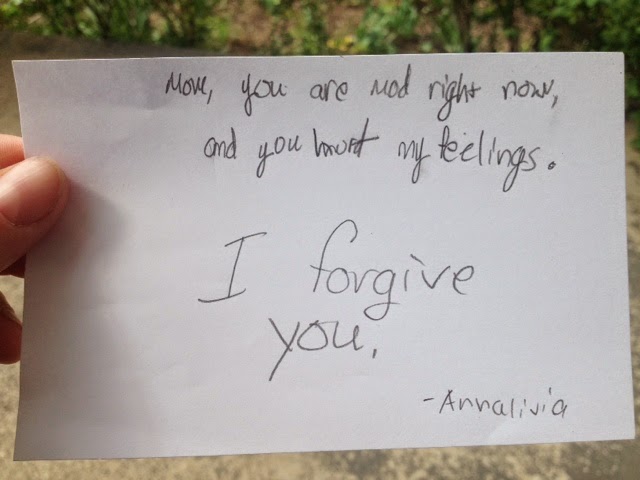 Mom, you are mad right now,
and you hurt my feelings.
I forgive
you.
-Annalivia